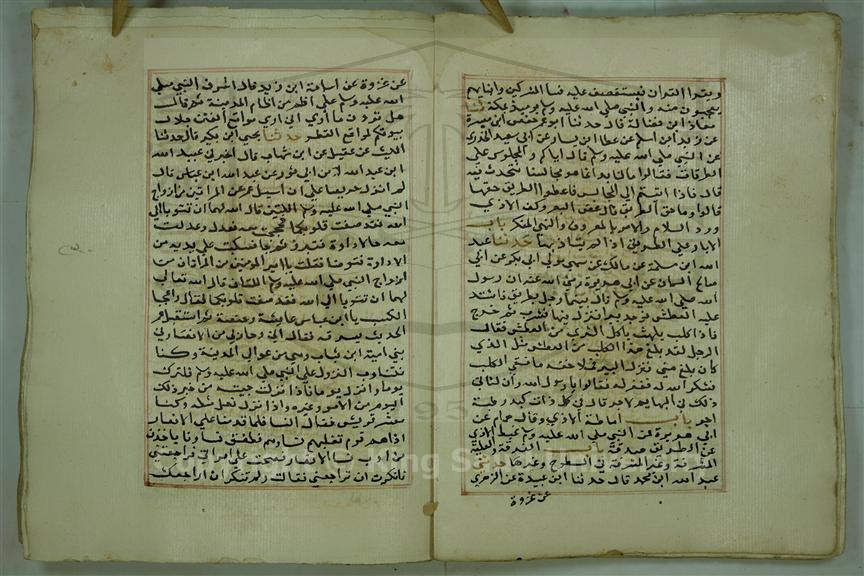 ويقرأ القران فيتقصف عليه نسا المشركين وابنايهم
يعجبون منه والنبي صلى الله عليه وسلم يوميذ بمكة حدثنا
معاذ ابن فضالة قال حدثنا ابو عمر حفص ابن ميسرة
عن زيد ابن اسلم عن عطا ابن يسار عن ابي سعيد الخدري
عن النبي صلى الله عليه وسلم قال اياكم والجلوس على
الطرقات فقالوا مالنا بد انما هو مجالسنا نتحدث فيه
قال فاذا اتيتم الى المجالس فاعطوا الطريق حقها
قالوا وما حق الطريق قال غض البصر وكف الاذي
ورد السلام والامر بالمعروف والنهي المنكر باب
الابار على الطريق اذا لم يتاذ بها حدثنا عبد
الله ابن مسلمة عن مالك عن سمي مولى ابي بكر عن ابي
صالح السمان عن ابي هريرة رضي الله عنه ان رسول
الله صلى الله عليه وسلم قال بينما رجل بطريق فاشتد
عليه العطش فوجد بيرا فنزل بها فشرب ثم خرج
فاذا كلب يلهث ياكل الثري من العطش فقال
الرجل لقد بلغ هذا الكلب من العطش مثل الذي
كان بلغ مني فنزل البير فملا خفه ما فسقي الكلب
فشكر الله له فغفر له فقالوا يا رسول الله وان لنا في
ذلك في البهايم لاجر قال في كل ذات كبد رطبة
اجر باب اماطة الاذي وقال همام عن
ابي هريرة عن النبي صلى الله عليه وسلم يميط الاذي
عن الطريق صدقة باب الغرفة والعلية
المشرفة وغير المشرفة في السطوح وغيرها حدثني
عبد الله ابن محمد قال حدثنا ابن عيينة عن الزهري
عن عروة
عن عروة عن اسامة ابن زيد قال اشرف النبي صلى
الله عليه وسلم على اطم من اطام المدينة ثم قال
هل ترون ما اري اني اري مواقع الفتن خلال
بيوتكم كمواقع القطر حدثنا يحيى ابن بكير قال حدثنا
الليث عن عقيل عن ابن شهاب قال اخبرني عبيد الله
ابن عبد الله ابن ابي ثور عن عبد الله ابن عباس قال
لم ازل حريصا على ان اسيل عمر عن المراتين من ازواج
النبي صلى الله عليه وسلم اللتين قال الله لهما ان تتوبا الى
الله فقد صغت قلوبكما فحججت معه فعدل وعدلت
معه بالاداوة فتبرز ثم جا فسكبت على يديه من
الاداوة فتوضا فقلت يا امير المومنين من المراتان من
ازواج النبي صلى الله عليه وسلم اللتان قال الله تعالى
لهما ان تتوبا الى الله فقد صغت قلوبكما فقال واعجبا
لك يا ابن عباس عايشة وحفصة ثم استقبل عمر
الحديث يسوقه فقال اني وجار لي من الانصار في
بني امية ابن زيد وهي من عوالي المدينة وكنا
نتناوب النزول على النبي صلى الله عليه وسلم فينزل
يوما وانزل يوما فاذا نزلت جيته من خبر ذلك
اليوم من الامر وغيره واذا نزل فعل مثله وكنا
معشر قريش نغلب النسا فلما قدمنا على الانصار
اذا هم قوم تغلبهم نساوهم فطفق نساونا ياخذن
من ادب نسا الانصار فصحت على امراتي فراجعتني
فانكرت ان تراجعني فقالت ولم تنكر ان اراجعك